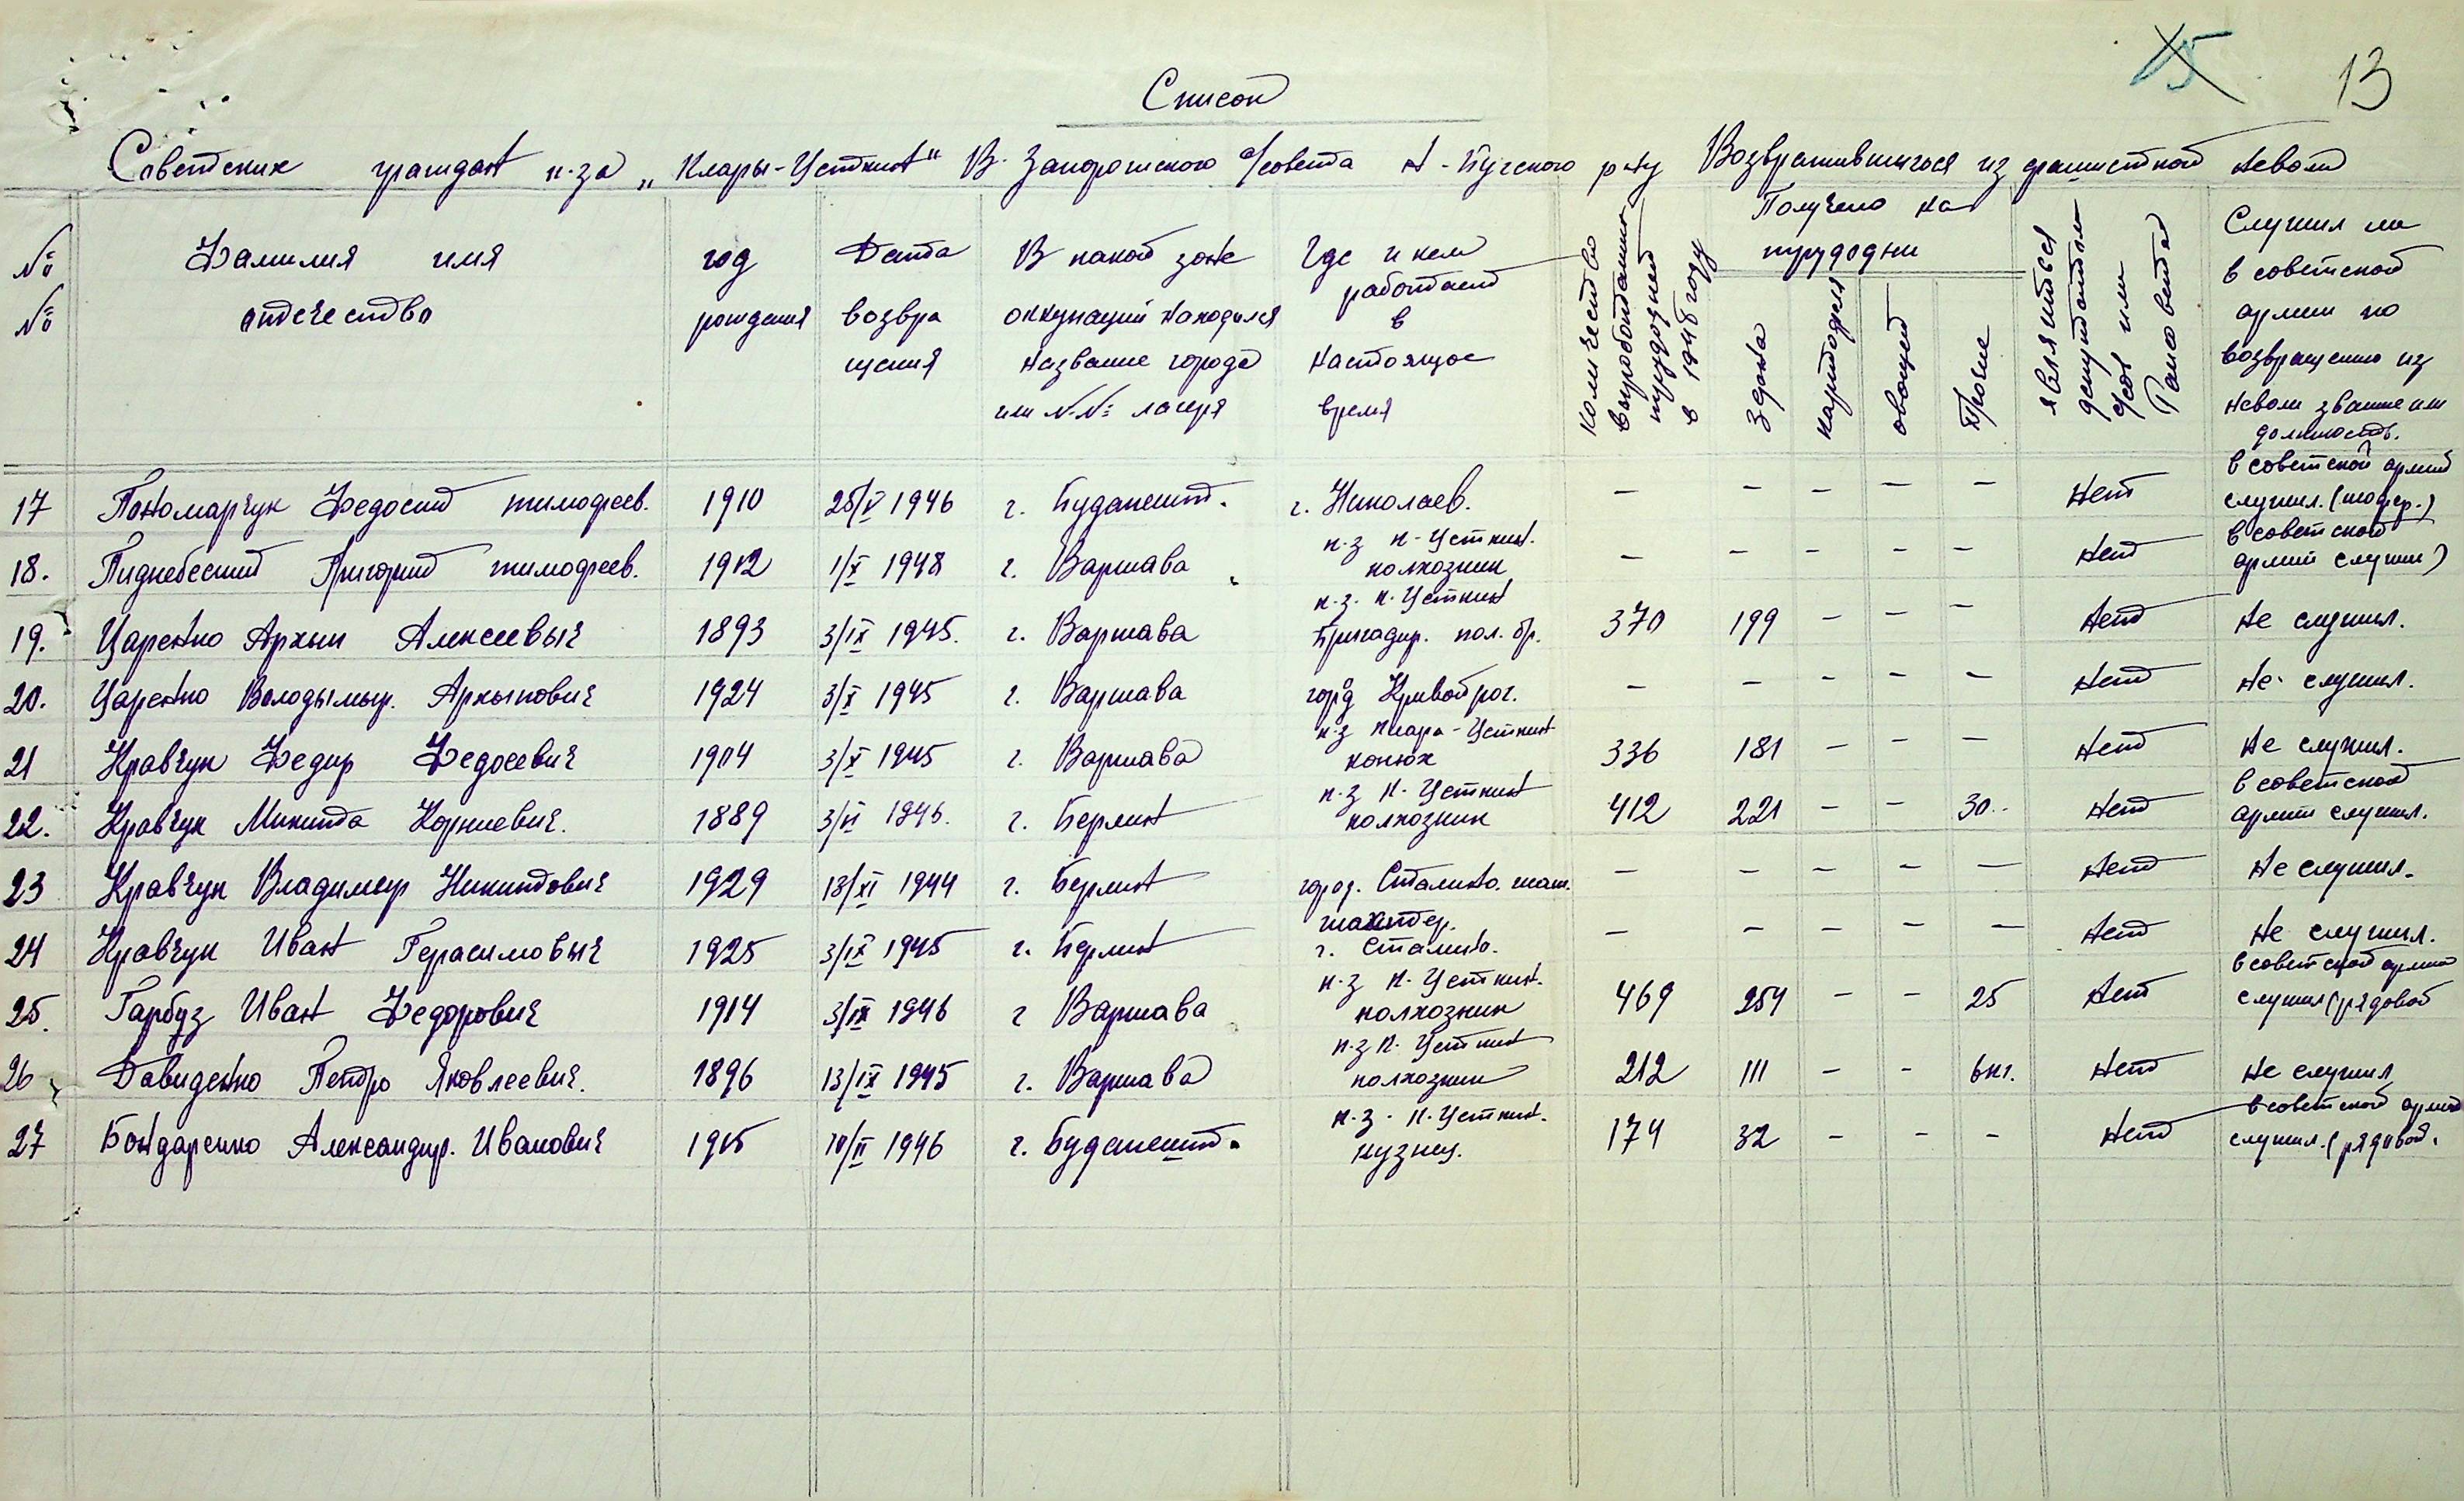 15 13
Список
Советских граждан к-за „Клары-Цеткин" В. Запорожского с/совета Н-Бугского р-ну Возвратившихся из фашистской неволи
№ №
Фамилия имя отчество
год рождения
Дата возвра щения
В какой зоне оккупации находился название города или №№ лагеря
Где и кем работает в настоящое время
Количество выработанных трудодней в 1948 году
Получено на трудодни
зерна
картофеля
овощей
Прочие
является депутатом с/сов или Райсовета
Служил ли в советской армии по возвращению из неволи звание или должность.
17 Пономарчук Федосий тимофеев. 1910 25/V 1946 г. Будапешт. г. Николаев. — — — — — Нет в советской армии служил. (шофер.)
18. Пиднебесний Григорий тимофеев. 1912 1/X 1948 г. Варшава к-з К-Цеткин. колхозник — — — — — Нет в советской армии служил)
19. Царенко Архып Алексеевыч 1893 3/IX 1945. г. Варшава к-з. К. Цеткин Бригадир. пол. бр. 370 199 — — — Нет Не служил.
20. Царенко Володымыр. Архыпович 1924 3/X 1945 г. Варшава город Кривойрог. — — — — — Нет Не служил.
21 Кравчук Федир Федосевич 1904 3/X 1945 г. Варшава к-з Клара-Цеткин конюх 336 181 — — — Нет Не служил.
22. Кравчук Микита Корниевич. 1889 3/VI 1946. г. Берлин к-з К. Цеткин колхозник 412 221 — — 30.. Нет в советской армии служил.
23 Кравчук Владимыр Никитович 1929 18/XI 1944 г. Берлин город. Сталино. шах. — — — — — Нет Не служил.
24 Кравчук Иван Герасимовыч 1925 3/IX 1945 г. Берлин шахтер. г. Сталино. — — — — — Нет Не служил.
25. Гарбуз Иван Федорович 1914 3/IX 1946 г Варшава к-з К. Цеткин. колхозник 469 254 — — 25 Нет в советской армии служил (рядовой
26 Давиденко Петро Яковлеевич. 1896 13/IX 1945 г. Варшава к-з К. Цеткин колхозник 212 111 — — 6кг. Нет Не служил
27 Бондаренко Александир. Иванович 1915 10/II 1946 г. Будапешт. к-з. К. Цеткин. кузнец. 174 32 — — — Нет в советской армии служил. (рядовой.